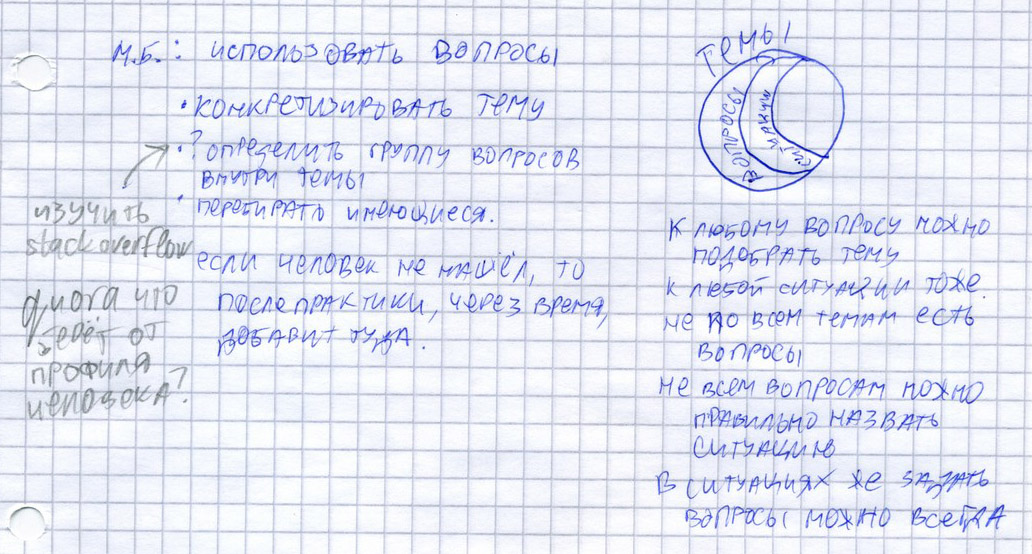 М.Б.: ИСПОЛЬЗОВАТЬ ВОПРОСЫ
• КОНКРЕТИЗИРОВАТЬ ТЕМУ
• ? ОПРЕДЕЛИТЬ ГРУППУ ВОПРОСОВ
ВНУТРИ ТЕМЫ
• ПЕРЕБИРАТЬ ИМЕЮЩИЕСЯ.
ИЗУЧИТЬ
stackoverflow
ЕСЛИ ЧЕЛОВЕК НЕ НАШЁЛ, ТО
ПОСЛЕ ПРАКТИКИ, ЧЕРЕЗ ВРЕМЯ,
ДОБАВИТ ТУДА.
ЧТО
БЕРЁТ ОТ
ПРОФИЛЯ
ЧЕЛОВЕКА?
ТЕМЫ
ВОПРОСЫ
К ЛЮБОМУ ВОПРОСУ МОЖНО
ПОДОБРАТЬ ТЕМУ
К ЛЮБОЙ СИТУАЦИИ ТОЖЕ.
НЕ ПО ВСЕМ ТЕМАМ ЕСТЬ
ВОПРОСЫ
НЕ ВСЕМ ВОПРОСАМ МОЖНО
ПРАВИЛЬНО НАЗВАТЬ
СИТУАЦИЮ
В СИТУАЦИЯХ ЖЕ ЗАДАТЬ
ВОПРОСЫ МОЖНО ВСЕГДА